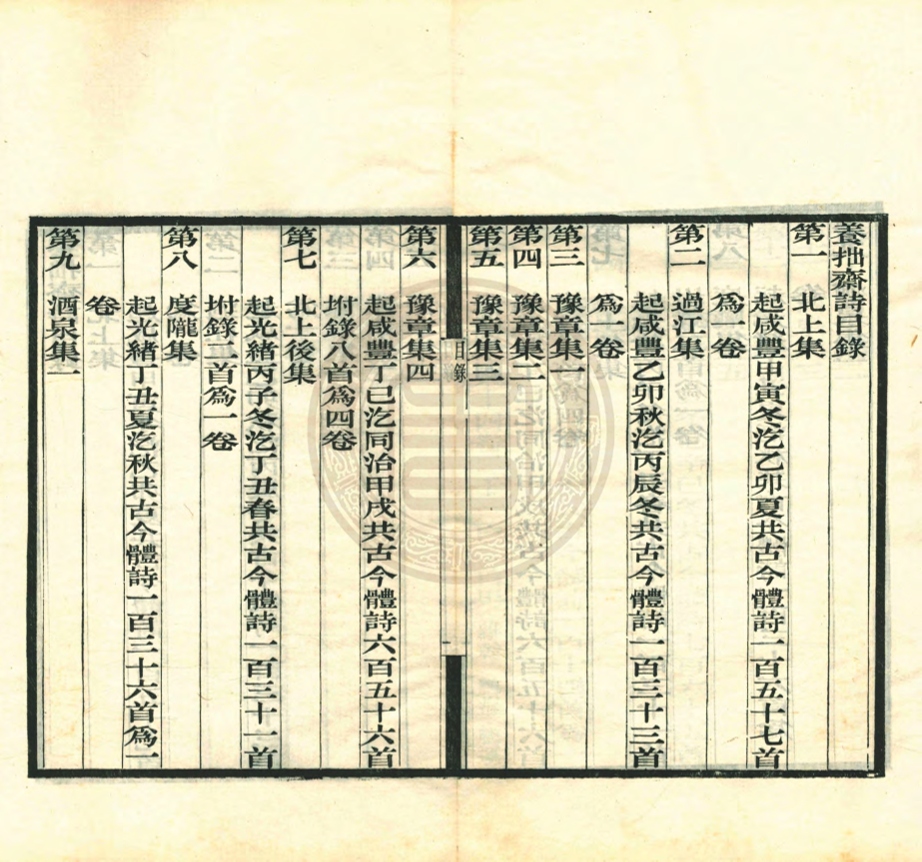 養拙齋詩目錄
第一 北上集
起咸豐甲寅冬汔乙卯夏共古今體詩一百五十七首
爲一卷
第二 過江集
起咸豐乙卯秋汔丙辰冬共古今體詩一百三十三首
爲一卷
第三 豫章集一
第四 豫章集二
第五 豫章集三
目錄
一
第六 豫章集四
起咸豐丁巳汔同治甲戌共古今體詩六百五十六首
坿錄八首爲四卷
第七 北上後集
起光緒丙子冬汔丁丑春共古今體詩一百三十一首
坿錄二首爲一卷
第八 度隴集
起光緒丁丑夏汔秋共古今體詩一百三十六首爲一
卷
第九 酒泉集一